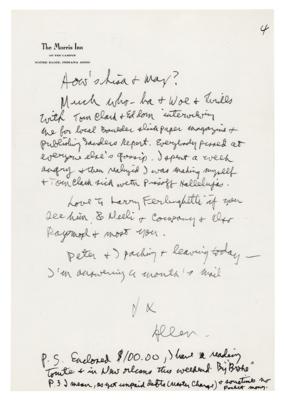 4
The Morris Inn
ON THE CAMPUS
NOTRE DAME, INDIANA 46556
How's Lisa & Max?
Much who-ha & Woe & Thrills
with Tom Clark & Ed Dorn interviewing
me for local Boulder slick paper magazine &
publishing Sanders Report. Everybody pissed at
everyone else's gossip. I spent a week
angry & then realized I was making myself
& Tom Clark sick with Pissoff Hallelujas.
Love to Larry Ferlinghetti if you
see him. & Neeli & Company & Ebr
Raymond & most you.
Peter & I packing & leaving today —
I'm answering a month's mail
Allen
P.S. Enclosed $100.00, I have a reading
tonite & in New Orleans this weekend. By "Broke"
P.3 I mean, as get unpaid debts (Master Charge) & sometimes no
pocket money.